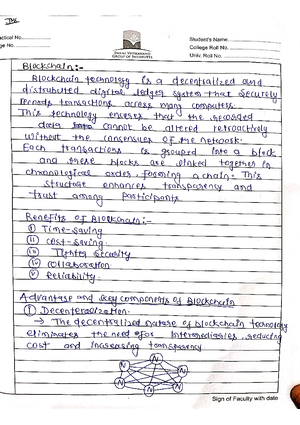 Student's Name
College Roll No.
Univ. Roll No.
Blockchain:-
Blockchain technology is a decentralized and
distributed digital ledger system that securely
records transactions across many computers.
This technology ensures that the recorded
data cannot be altered retroactively
without the consensus of the network.
Each transactions is grouped into a block
and these blocks are linked together in
chronological order, forming a chain. This
structure enhances transparency and
trust among participants.
Benefits of Blockchain:-
(i) Time-saving
(ii) cost-saving
(iii) Tighter security
(iv) collaboration
(v) Reliability.
Advantage and key components of Blockchain
(1) Decenteralization.
→ The decentralized nature of blockchain technology
eliminates the need for intermediaries, reducing
cost and increasing transparency
N
N N
N N
N
Sign of Faculty with date